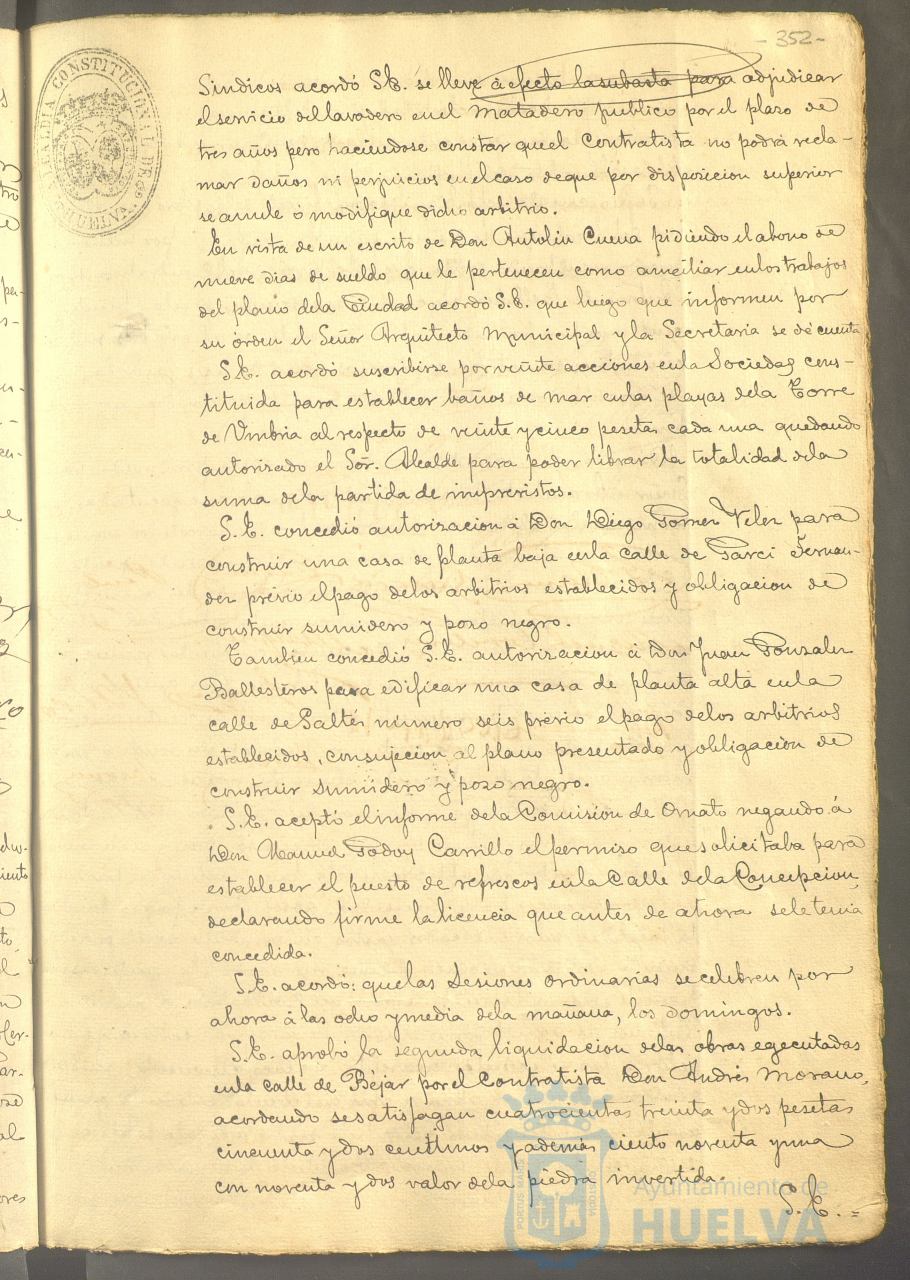 - 352 -
ALCALDIA CONSTITUCIONAL DE HUELVA
Sindicos acordó S.E. se lleve á efecto la subasta para adjudicar
el servicio del lavadero en el Matadero publico por el plazo de
tres años pero haciéndose constar que el Contratista no podrá recla-
mar daños ni perjuicios en el caso de que por disposicion superior
se anule ó modifique dicho arbitrio.
En vista de un escrito de Don Antolin Cuena pidiendo el abono de
nueve dias de sueldo que le pertenecen como auxiliar en los trabajos
del plano de la Ciudad acordó S.E. que luego que informen por
su orden el Señor Arquitecto Municipal y la Secretaria se dé cuenta
S.E. acordó suscribirse por veinte acciones en la Sociedad cons-
tituida para establecer baños de mar en las playas de la Torre
de Umbria al respecto de veinte y cinco pesetas cada una quedando
autorizado el Sór. Alcalde para poder librar la totalidad de la
suma de la partida de imprevistos.
S.E. concedió autorizacion á Don Diego Garner Velez para
construir una casa de planta baja en la calle de Garci Fernan-
dez prévio el pago de los arbitrios establecidos y obligacion de
construir sumidero y pozo negro.
Tambien concedió S.E. autorizacion á Don Juan Gonzalez
Ballesteros para edificar una casa de planta alta en la
calle de Saltés número seis prévio el pago de los arbitrios
establecidos, con sujecion al plano presentado y obligacion de
construir sumidero y pozo negro.
S.E. aceptó el informe de la Comision de Ornato negando á
Don Manuel Godoy Carrillo el permiso que solicitaba para
establecer el puesto de refrescos en la Calle de la Concepcion,
declarando firme la licencia que antes de ahora se le tenia
concedida.
S.E. acordó: que las Sesiones ordinarias se celebren por
ahora á las ocho y media de la mañana, los Domingos.
S.E. aprobó la segunda liquidacion de las obras egecutadas
en la calle de Béjar por el Contratista Don Andrés Morano,
acordando se satisfagan cuatrocientas treinta y dos pesetas
cincuenta y dos centimos y además ciento noventa y una
con noventa y dos valor de la piedra invertida.
S.E.=
Ayuntamiento de
HUELVA